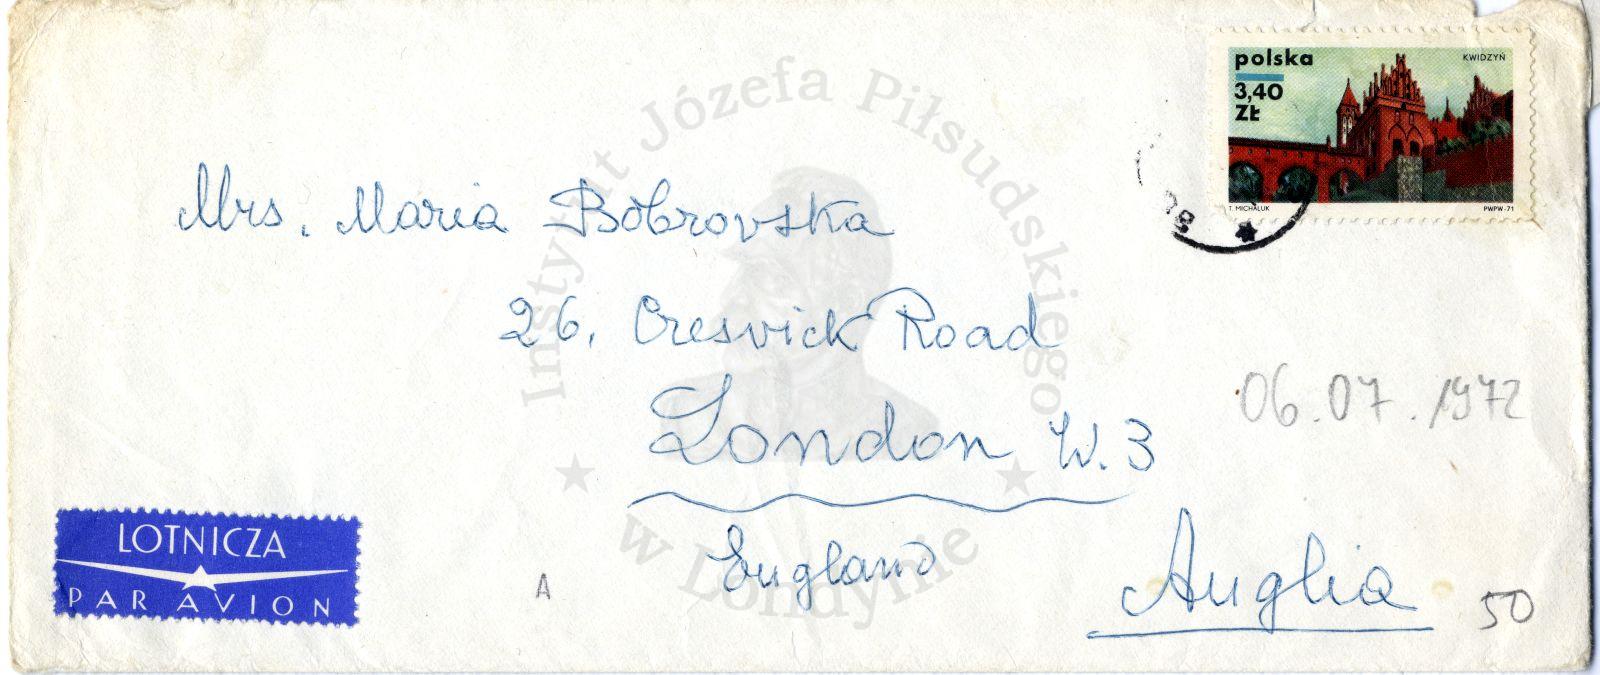 polska
KWIDZYŃ
3,40
ZŁ
T. MICHALUK
PWPW-71
Instytut Józefa Piłsudskiego
w Londynie
Mrs. Maria Bobrovska
26, Cresvick Road
London W. 3
England
Anglia
06.07.1972
50
A
LOTNICZA
PAR AVION